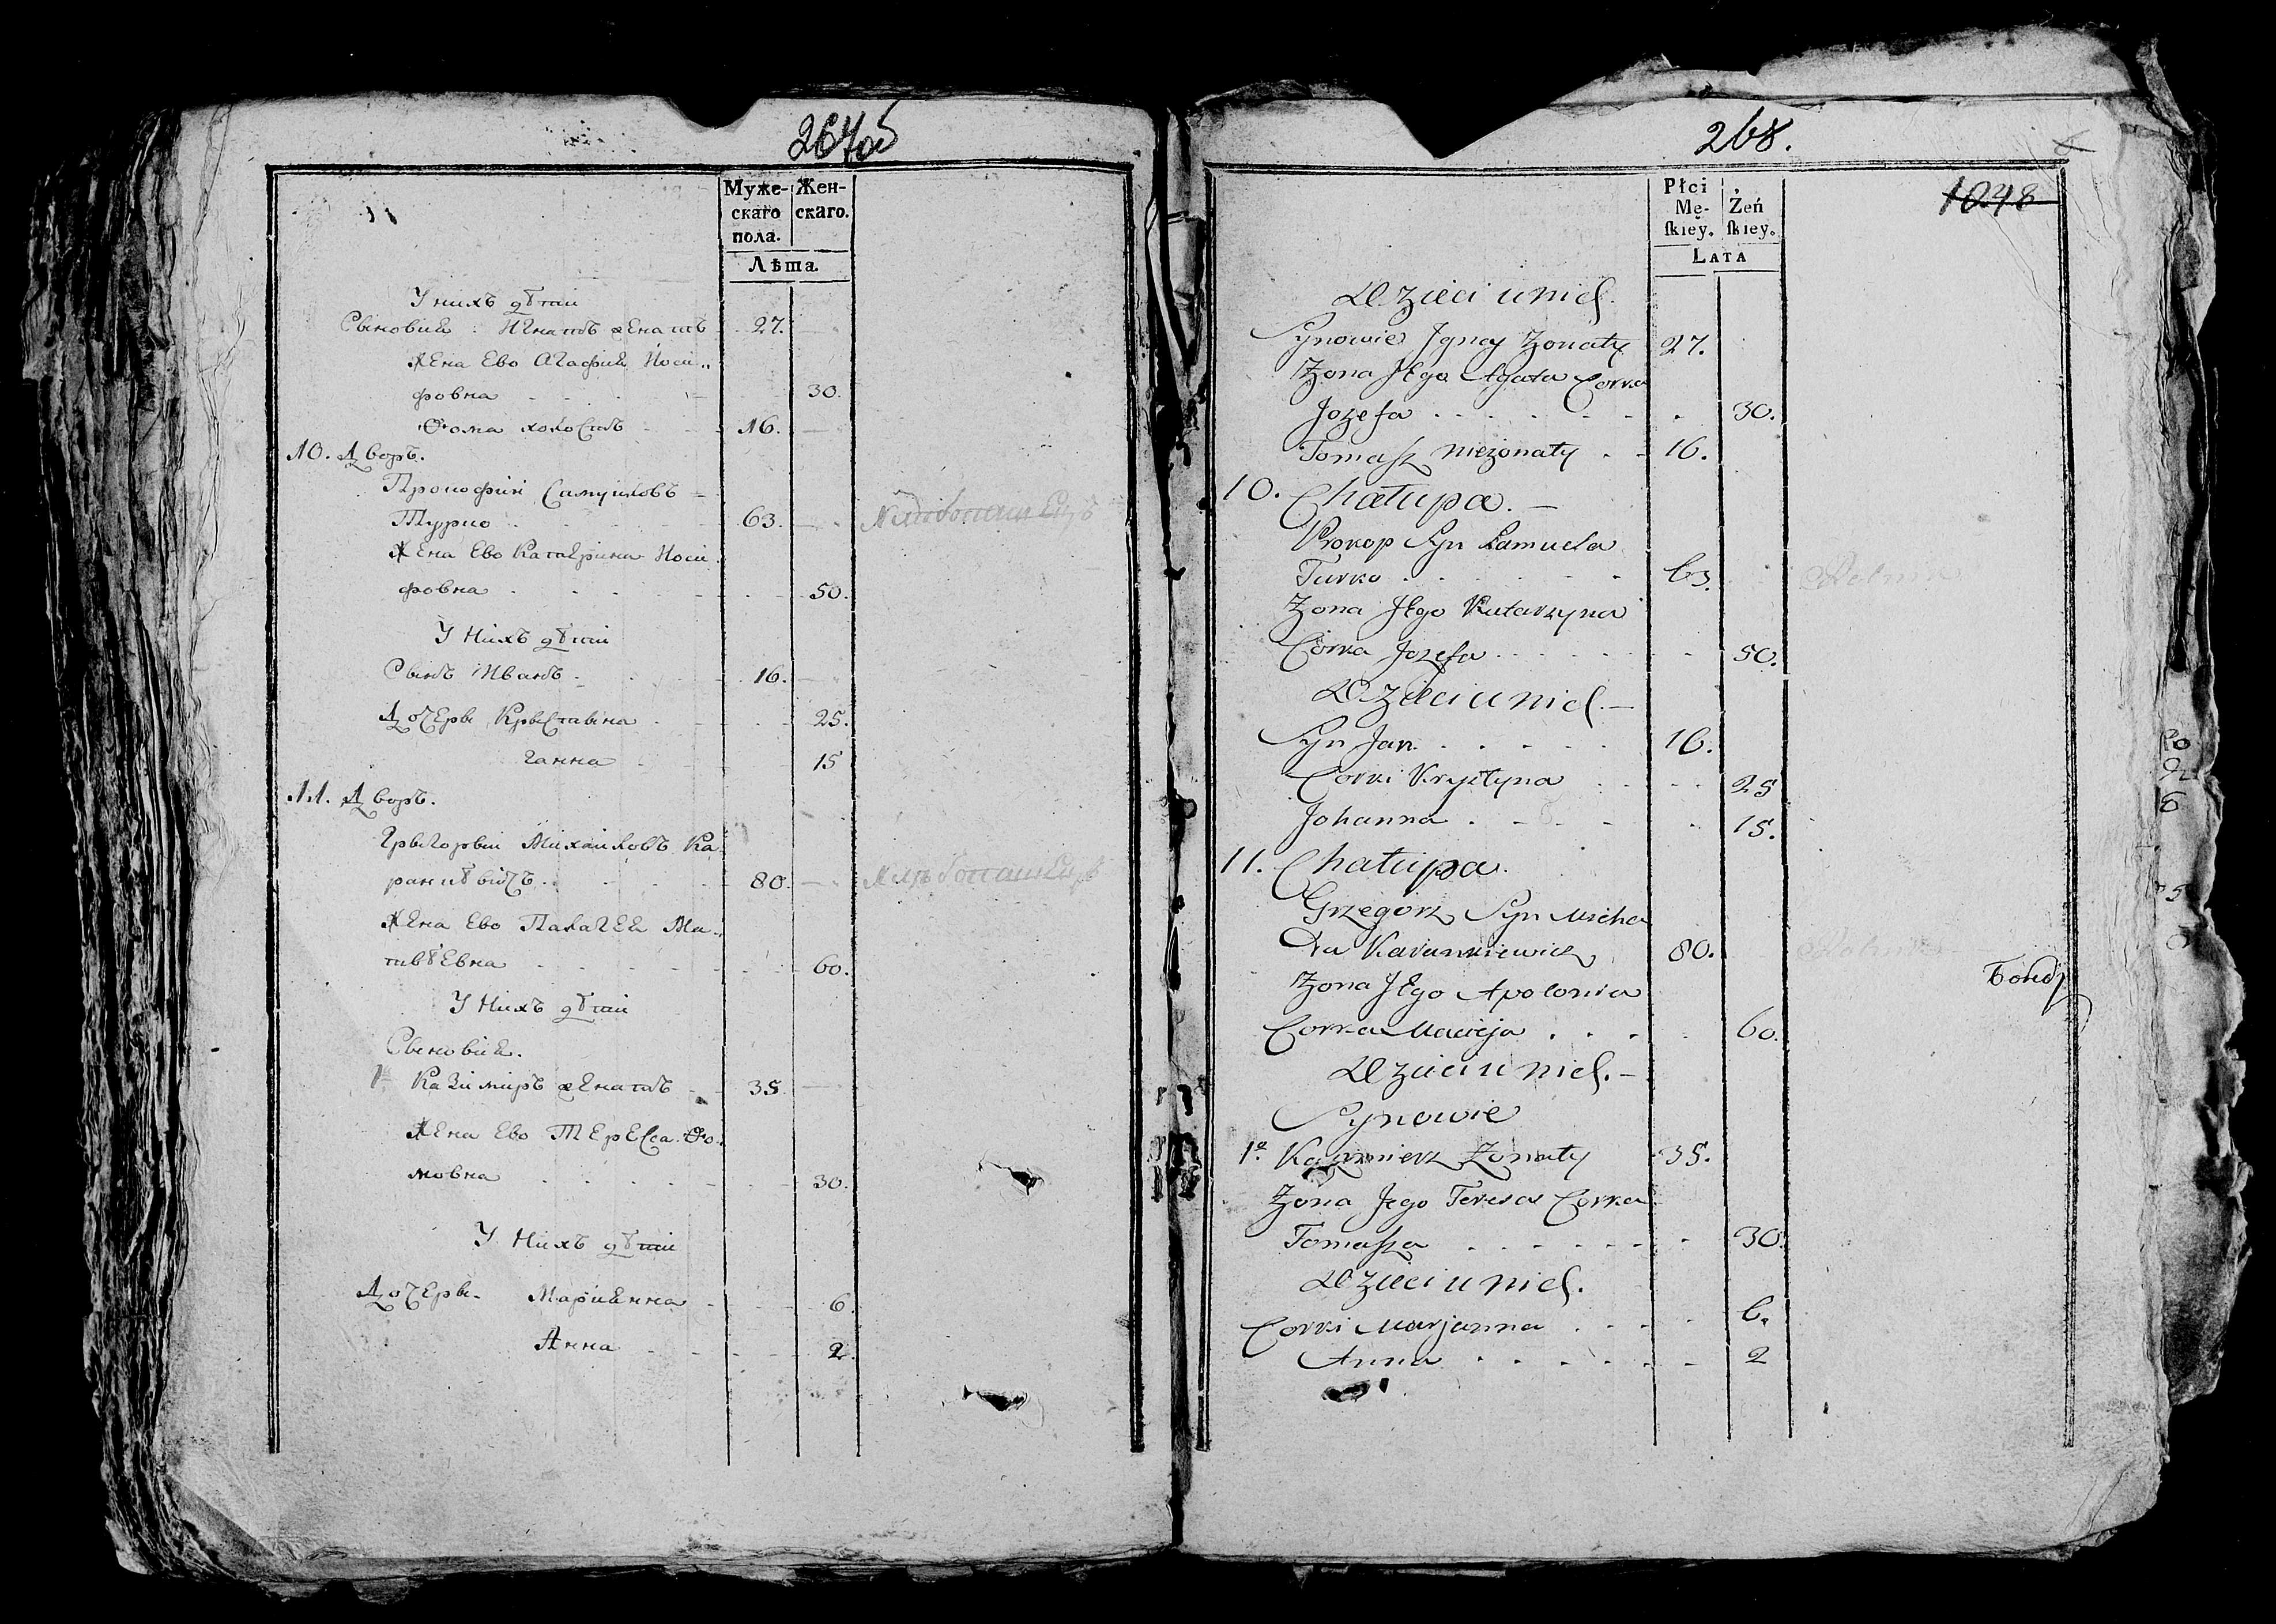 267об
Муже- Жен-
скаго скаго.
пола.
Лѣта.
У нихъ дѣти
Сыновия: Игнатъ женатъ 27.
Жена Ево Агафия Носи..
фовна 30.
Ѳома холостъ 16.
10. Дворъ.
Прокофий Самуиловъ
Турко 63. Хлѣбопашецъ
Жена Ево Катерина Носи
фовна 50.
У нихъ дѣти
Сынъ Иванъ 16.
Дочери Крыстина 25.
Ганна 15
11. Дворъ.
Грыгорый Михаиловъ Ка
ранкѣвичъ 80. Хлѣбопашецъ
Жена Ево Палагея Ма-
твѣевна 60.
У нихъ дѣти
Сыновия.
1й Казимиръ женатъ 35.
Жена Ево Тересса Ѳо.
мовна 30.
У нихъ дѣти
Дочери. Мариянна 6.
Анна 2.
268.
Płci
Mę- Żeń
skiey. skiey.
Lata
1048
Dzieci u nich.
Synowie Jgnacy Żonaty 27.
Żona Jego Agata Corka
Jozefa 30.
Tomasz nieżonaty 16.
10. Chałupa.
Prokop Syn Samuela
Turko 63. Rolnik
Żona Jego Katarzyna
Corka Jozefa 50.
Dzieci u nich.
Syn Jan 16.
Corki Krystyna 25
Johanna 15.
11. Chałupa.
Grzegorz Syn Micha
ła Karankiewicz 80. Rolnik
Żona Jego Apolonia
Corka Macieja 60.
Dzieci u nich.
Synowie
1º. Kazimierz Żonaty 35.
Żona Jego Teresa Corka
Tomasza 30.
Dzieci u nich.
Corki Marjanna 6.
Anna 2